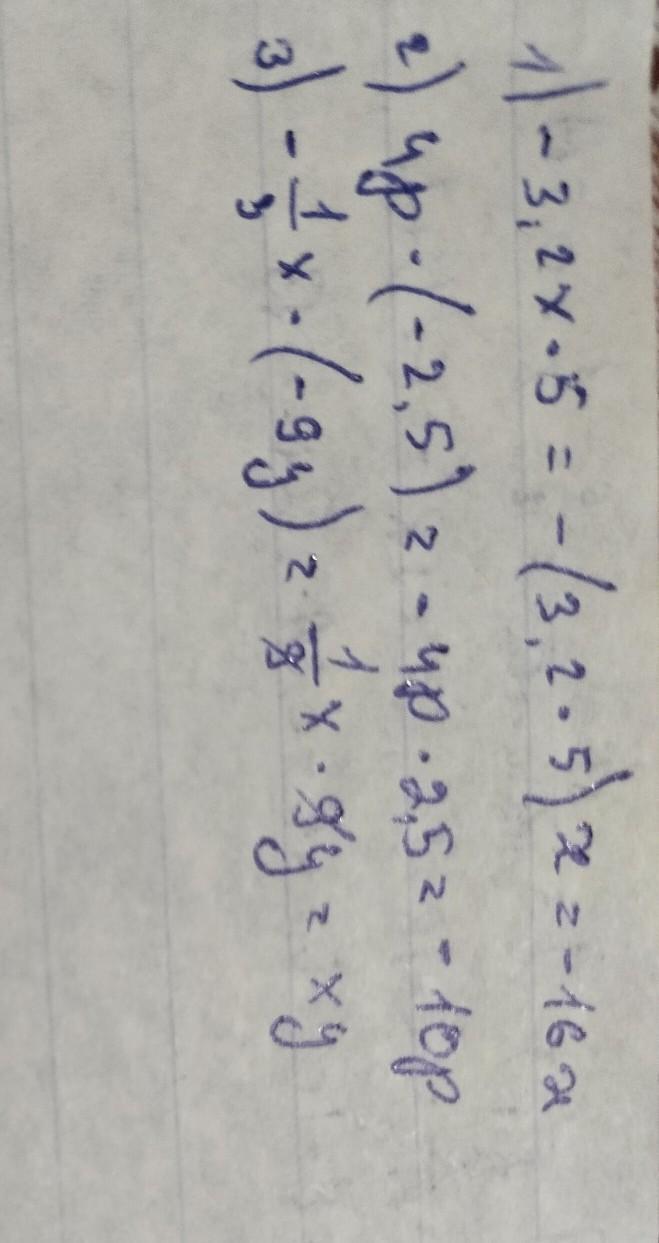 1) -3,2x·5 = -(3,2·5)x = -16x
2) 4p·(-2,5) = -4p·2,5 = -10p
3) -1/9 x·(-9y) = 1/9 x·9y = xy